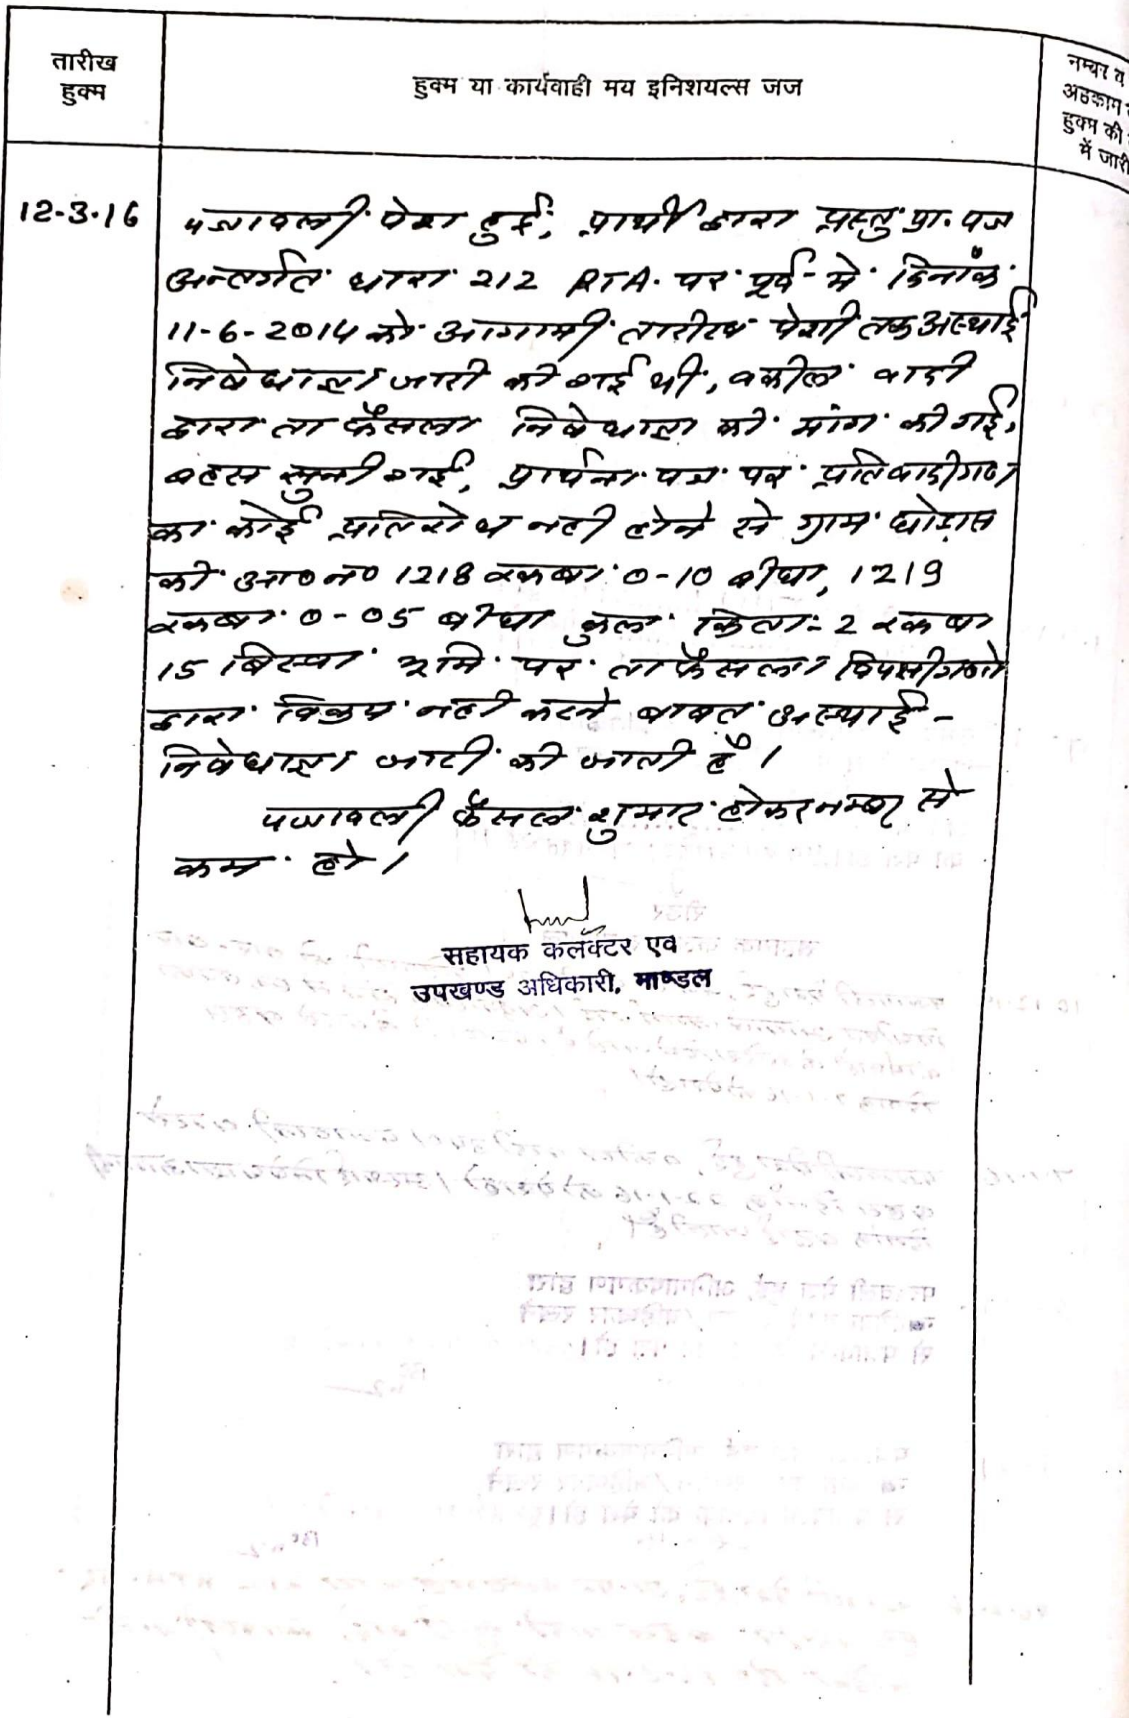 तारीख
हुक्म
हुक्म या कार्यवाही मय इनिशयल्स जज
नम्बर व
अहकाम
हुक्म की
में जारी
12-3-16
पत्रावली पेश हुई, प्रार्थी द्वारा प्रस्तुत प्रा. पत्र
अन्तर्गत धारा 212 RTA. पर पूर्व में दिनांक
11-6-2014 को आगामी तारीख पेशी तक अस्थाई
निषेधाज्ञा जारी की गई थी, वकील वादी
द्वारा ता फैसला निषेधाज्ञा की मांग की गई,
बहस सुनी गई, प्रार्थना पत्र पर प्रतिवादीगण
का कोई प्रतिरोध नही होने से ग्राम घोड़ास
की आ० न० 1218 रकबा 0-10 बीघा, 1219
रकबा 0-05 बीघा कुल किता 2 रकबा
15 बिस्वा भूमि पर ता फैसला विपक्षीगणो
द्वारा विक्रय नही करने बाबत अस्थाई -
निषेधाज्ञा जारी की जाती है ।
पत्रावली फैसल शुमार होकर नम्बर से
कम हो ।
सहायक कलेक्टर एवं
उपखण्ड अधिकारी, माण्डल